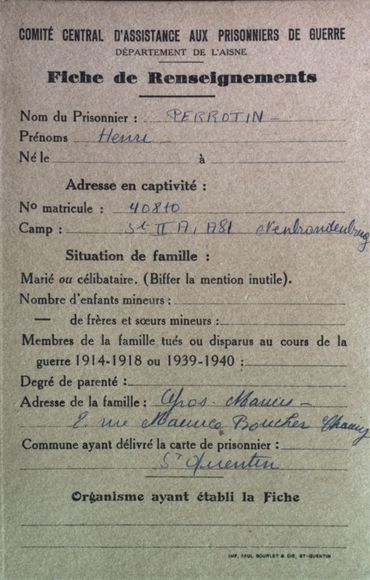 COMITÉ CENTRAL D'ASSISTANCE AUX PRISONNIERS DE GUERRE
DÉPARTEMENT DE L'AISNE
Fiche de Renseignements
Nom du Prisonnier : PERROTIN
Prénoms Henri
Né le à
Adresse en captivité :
No matricule : 40810
Camp : St II A, A81 Neubrandenburg
Situation de famille :
Marié ou célibataire. (Biffer la mention inutile).
Nombre d'enfants mineurs :
— de frères et sœurs mineurs :
Membres de la famille tués ou disparus au cours de la
guerre 1914-1918 ou 1939-1940 :
Degré de parenté :
Adresse de la famille :
2, rue Maurice Boucher Chauny
Commune ayant délivré la carte de prisonnier :
St Quentin
Organisme ayant établi la Fiche
IMP. PAUL BOURLET & CIE, ST-QUENTIN